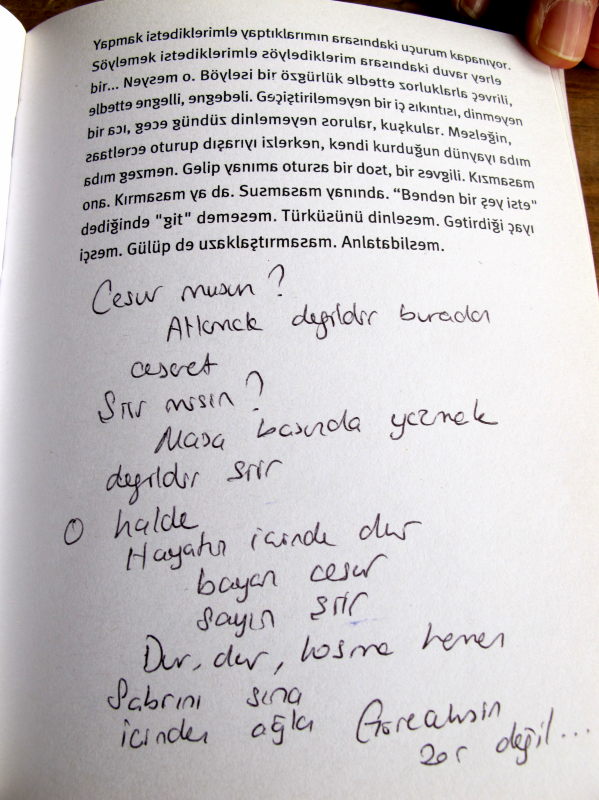 Yapmak istediklerimle yaptıklarımın arasındaki uçurum kapanıyor.
Söylemek istediklerimle söylediklerim arasındaki duvar yerle
bir... Neysem o. Böylesi bir özgürlük elbette zorluklarla çevrili,
elbette engelli, engebeli. Geçiştirilemeyen bir iç sıkıntısı, dinmeyen
bir acı, gece gündüz dinlemeyen sorular, kuşkular. Meseleğin,
saatlerce oturup dışarıyı izlerken, kendi kurduğun dünyayı adım
adım gezmen. Gelip yanıma otursa bir dost, bir sevgili. Kızmasam
ona. Kırmasam ya da. Susmasam yanında. "Benden bir şey iste"
dediğinde "git" demesem. Türküsünü dinlesem. Getirdiği çayı
içsem. Gülüp de uzaklaştırmasam. Anlatabilsem.
Cesur musun ?
Atlamak değildir buradan
cesaret
Şiir misin ?
Masa başında yazmak
değildir şiir
O halde
Hayatın içinde dur
bayan cesur
sayın şiir
Dur, dur, koşma hemen
Sabrını sına
içinden ağla Göreceksin
zor değil...